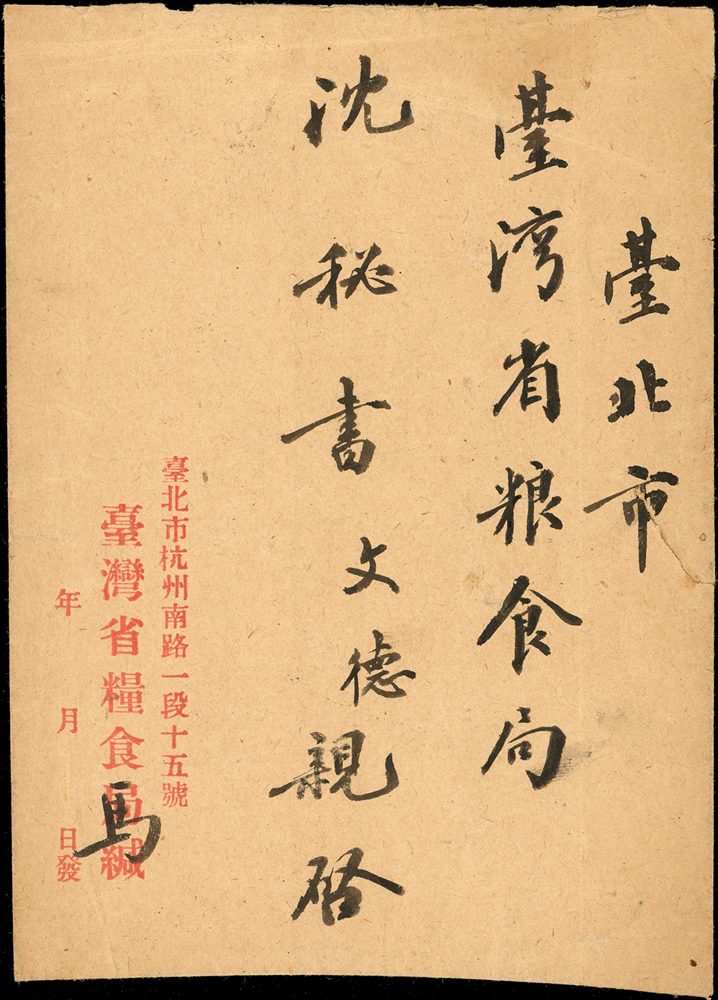 臺北市
臺湾省粮食局
沈秘書文德親啓
臺北市杭州南路一段十五號
臺灣省糧食局緘
馬
年 月 日發